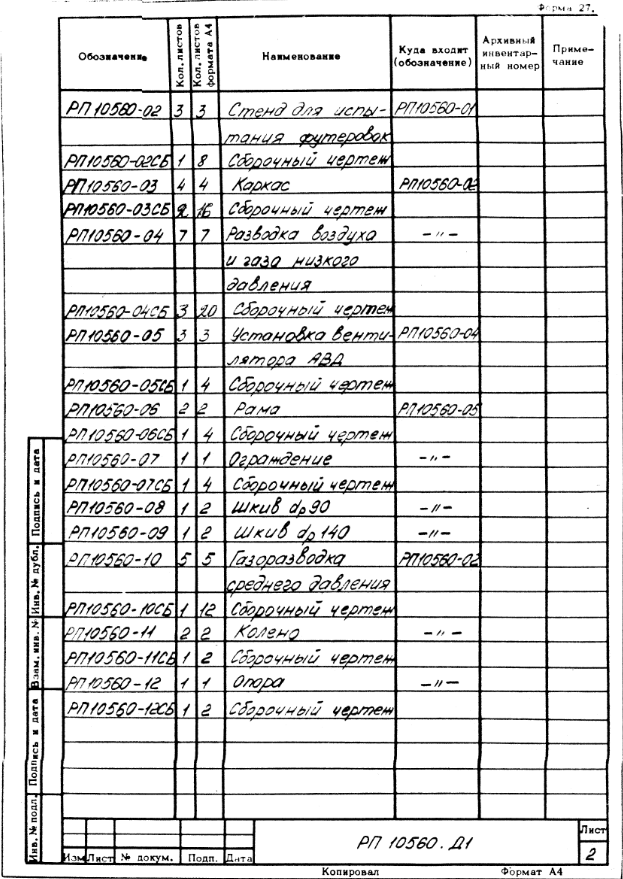 Форма 27.
Обозначение Кол. листов Кол. листов формата А4 Наименование Куда входит (обозначение) Архивный инвентар-ный номер Приме-чание
РП10560-02 3 3 Стенд для испы- РП10560-01
тания футеровок
РП10560-02СБ 1 8 Сборочный чертеж
РП10560-03 4 4 Каркас РП10560-02
РП10560-03СБ 2 16 Сборочный чертеж
РП10560-04 7 7 Разводка воздуха —"—
и газа низкого
давления
РП10560-04СБ 3 20 Сборочный чертеж
РП10560-05 3 3 Установка венти- РП10560-04
лятора АВД
РП10560-05СБ 1 4 Сборочный чертеж
РП10560-06 2 2 Рама РП10560-05
РП10560-06СБ 1 4 Сборочный чертеж
РП10560-07 1 1 Ограждение —"—
РП10560-07СБ 1 4 Сборочный чертеж
РП10560-08 1 2 Шкив dр90 —"—
РП10560-09 1 2 Шкив dр140 —"—
РП10560-10 5 5 Газоразводка РП10560-02
среднего давления
РП10560-10СБ 1 12 Сборочный чертеж
РП10560-11 2 2 Колено —"—
РП10560-11СБ 1 2 Сборочный чертеж
РП10560-12 1 1 Опора —"—
РП10560-12СБ 1 2 Сборочный чертеж
Подпись и дата
Инв. № дубл.
Взам. инв. №
Подпись и дата
Инв. № подл.
Изм Лист № докум. Подп. Дата
РП 10560. Д1
Лист
2
Копировал Формат А4